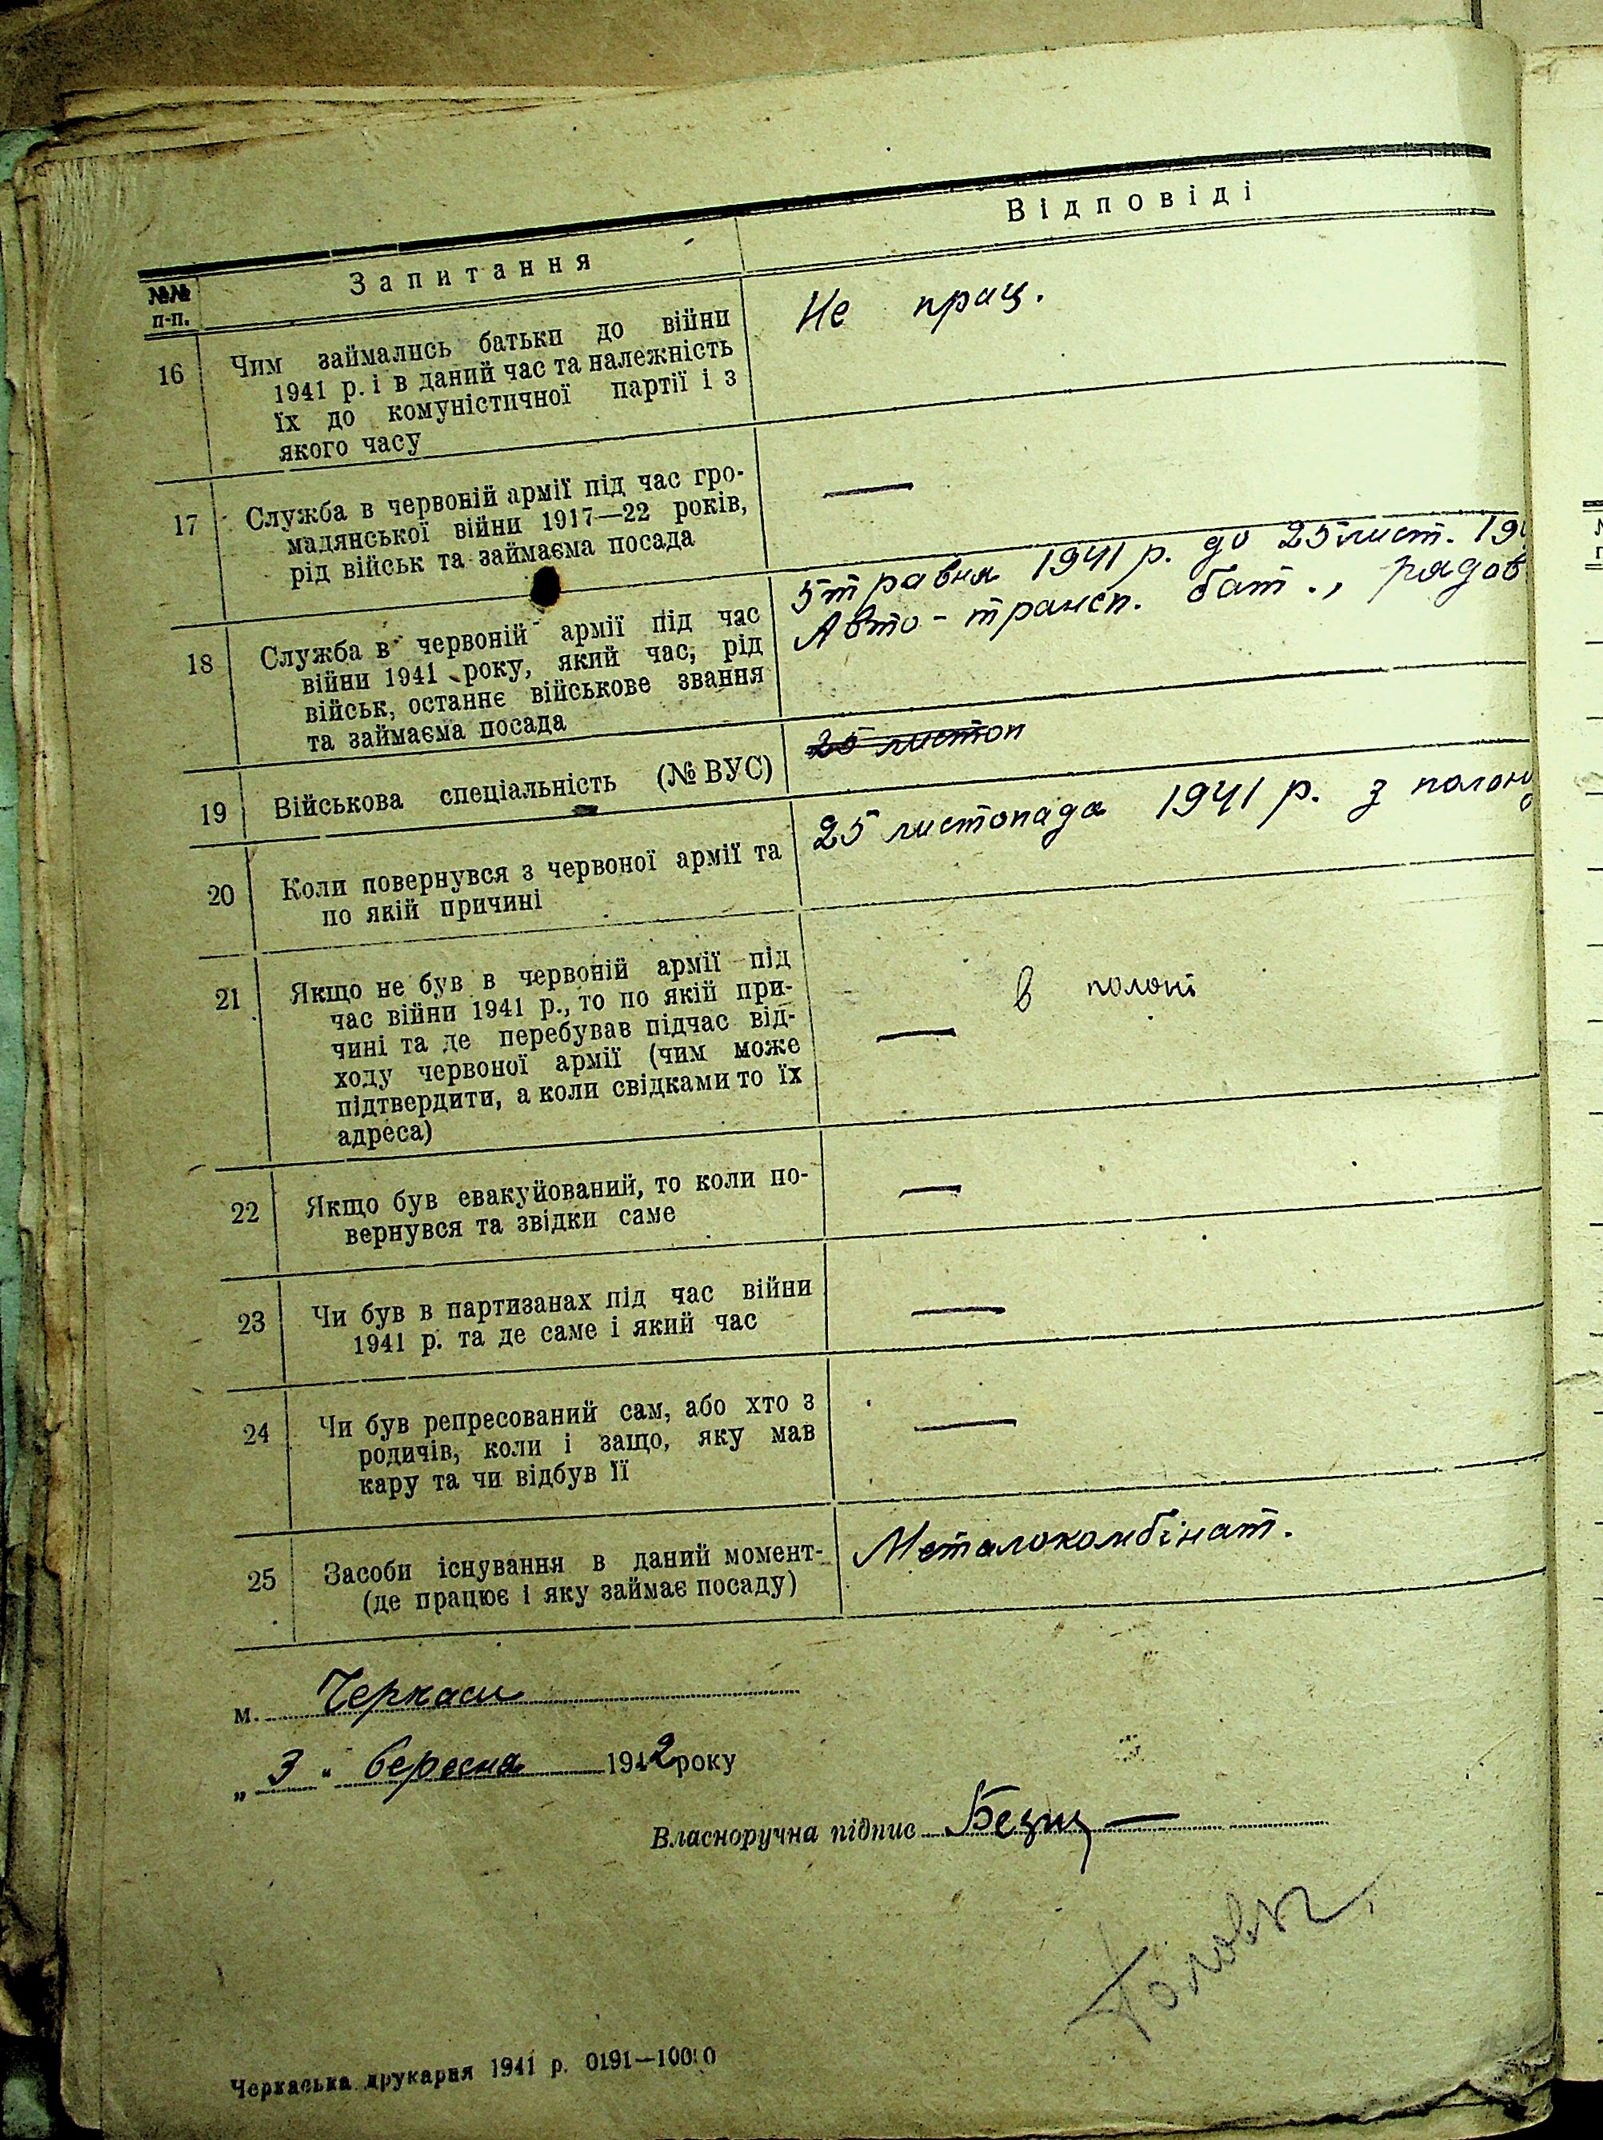 №№ п-п.
Запитання
Відповіді
16
Чим займались батьки до війни
1941 р. і в даний час та належність
їх до комуністичної партії і з
якого часу
Не прац.
17
Служба в червоній армії під час гро-
мадянської війни 1917—22 років,
рід військ та займаєма посада
—
18
Служба в червоній армії під час
війни 1941 року, який час, рід
військ, останнє військове звання
та займаєма посада
5 травня 1941 р. до 25 лист. 19
Авто-трансп. бат., рядов
19
Військова спеціальність (№ ВУС)
25 листоп
20
Коли повернувся з червоної армії та
по якій причині
25 листопада 1941 р. з полону
21
Якщо не був в червоній армії під
час війни 1941 р., то по якій при-
чині та де перебував підчас від-
ходу червоної армії (чим може
підтвердити, а коли свідками то їх
адреса)
в полоні
—
22
Якщо був евакуйований, то коли по-
вернувся та звідки саме
—
23
Чи був в партизанах під час війни
1941 р. та де саме і який час
—
24
Чи був репресований сам, або хто з
родичів, коли і защо, яку мав
кару та чи відбув її
—
25
Засоби існування в даний момент-
(де працює і яку займає посаду)
Металокомбінат.
м. Черкаси
„ 3 " вересня 1942 року
Власноручна підпис
Черкаська друкарня 1941 р. 0191—10000